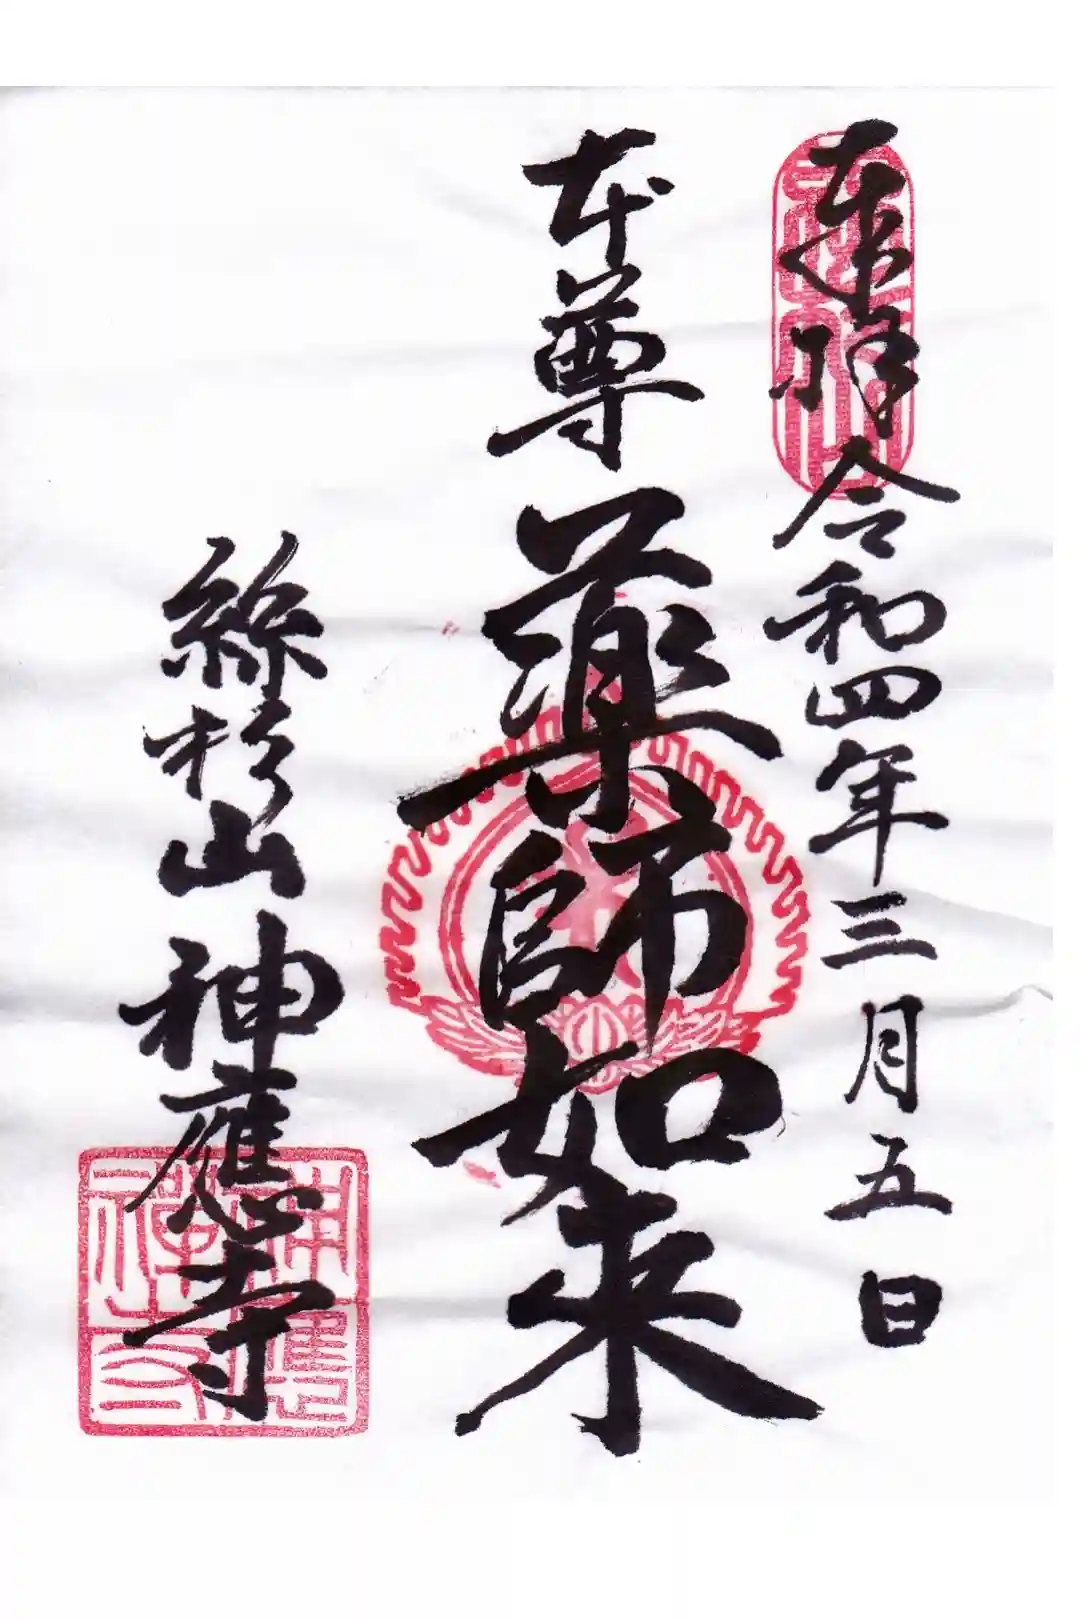 奉拝 令和四年三月五日
本尊 薬師如来
絲杉山 神應寺